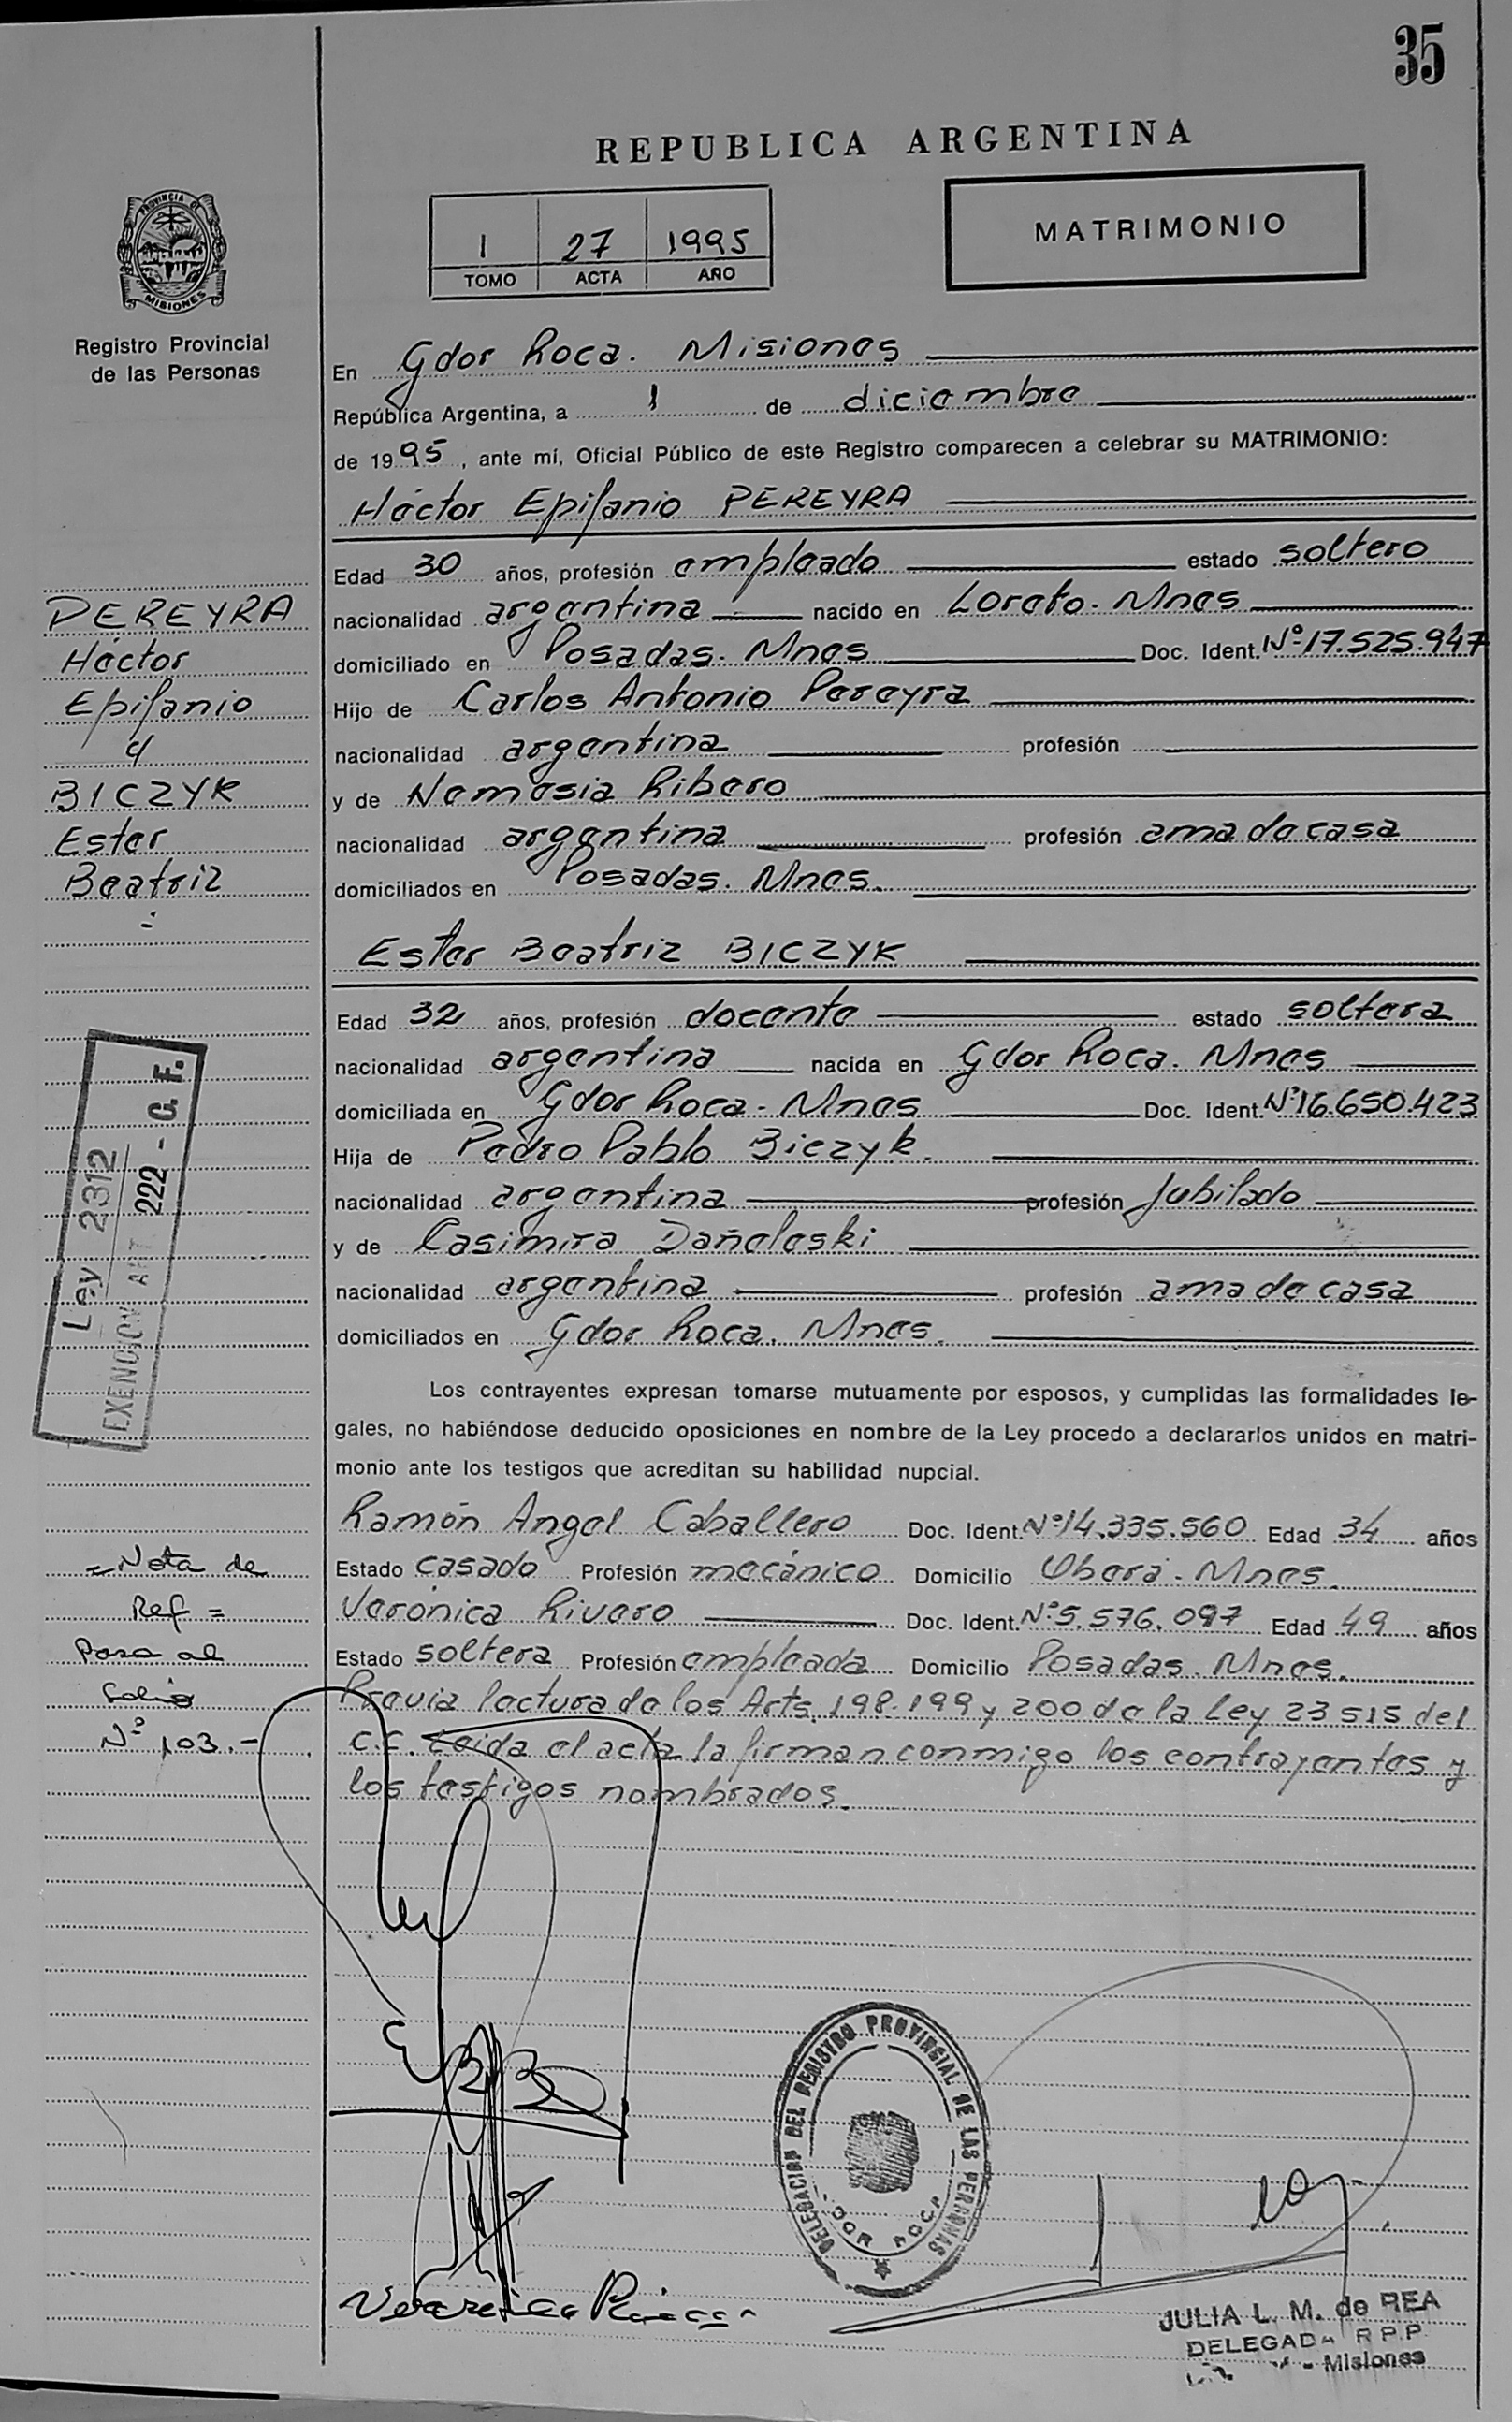 35
REPUBLICA ARGENTINA
PROVINCIA DE
MISIONES
Registro Provincial
de las Personas
1 27 1995
TOMO ACTA AÑO
MATRIMONIO
En Gdor Roca. Misiones
República Argentina, a 1 de diciembre
de 1995, ante mí, Oficial Público de este Registro comparecen a celebrar su MATRIMONIO:
Héctor Epifanio PEREYRA
Edad 30 años, profesión empleado estado soltero
nacionalidad argentina nacido en Loreto. Mnes
domiciliado en Posadas. Mnes Doc. Ident. Nº 17.525.947
Hijo de Carlos Antonio Pereyra
nacionalidad argentina profesión
y de Nemesia Ribero
nacionalidad argentina profesión ama de casa
domiciliados en Posadas. Mnes.
Ester Beatriz BICZYK
Edad 32 años, profesión docente estado soltera
nacionalidad argentina nacida en Gdor Roca. Mnes
domiciliada en Gdor Roca - Mnes Doc. Ident. Nº 16.650.423
Hija de Pedro Pablo Biczyk.
nacionalidad argentina profesión Jubilado
y de Casimira Dañeleski
nacionalidad argentina profesión ama de casa
domiciliados en Gdor Roca. Mnes.
Los contrayentes expresan tomarse mutuamente por esposos, y cumplidas las formalidades le-
gales, no habiéndose deducido oposiciones en nombre de la Ley procedo a declararlos unidos en matri-
monio ante los testigos que acreditan su habilidad nupcial.
Ramón Angel Caballero Doc. Ident. Nº 14.335.560 Edad 34 años
Estado casado Profesión mecánico Domicilio Oberá - Mnes.
Verónica Rivero Doc. Ident. Nº 5.576.097 Edad 49 años
Estado soltera Profesión empleada Domicilio Posadas. Mnes.
Previa lectura de los Arts. 198-199 y 200 de la Ley 23515 del
C.C. Leída el acta la firman conmigo los contrayentes y
los testigos nombrados.
PEREYRA
Héctor
Epifanio
c/
BICZYK
Ester
Beatriz
Ley 2312
EXENCION ART. 222 - C. F.
=Nota de
Ref=
Pasa al
Folio
Nº 103.-
DELEGACION DEL REGISTRO PROVINCIAL DE LAS PERSONAS
GDOR ROCA
JULIA L. M. de REA
DELEGADA R P P
Misiones